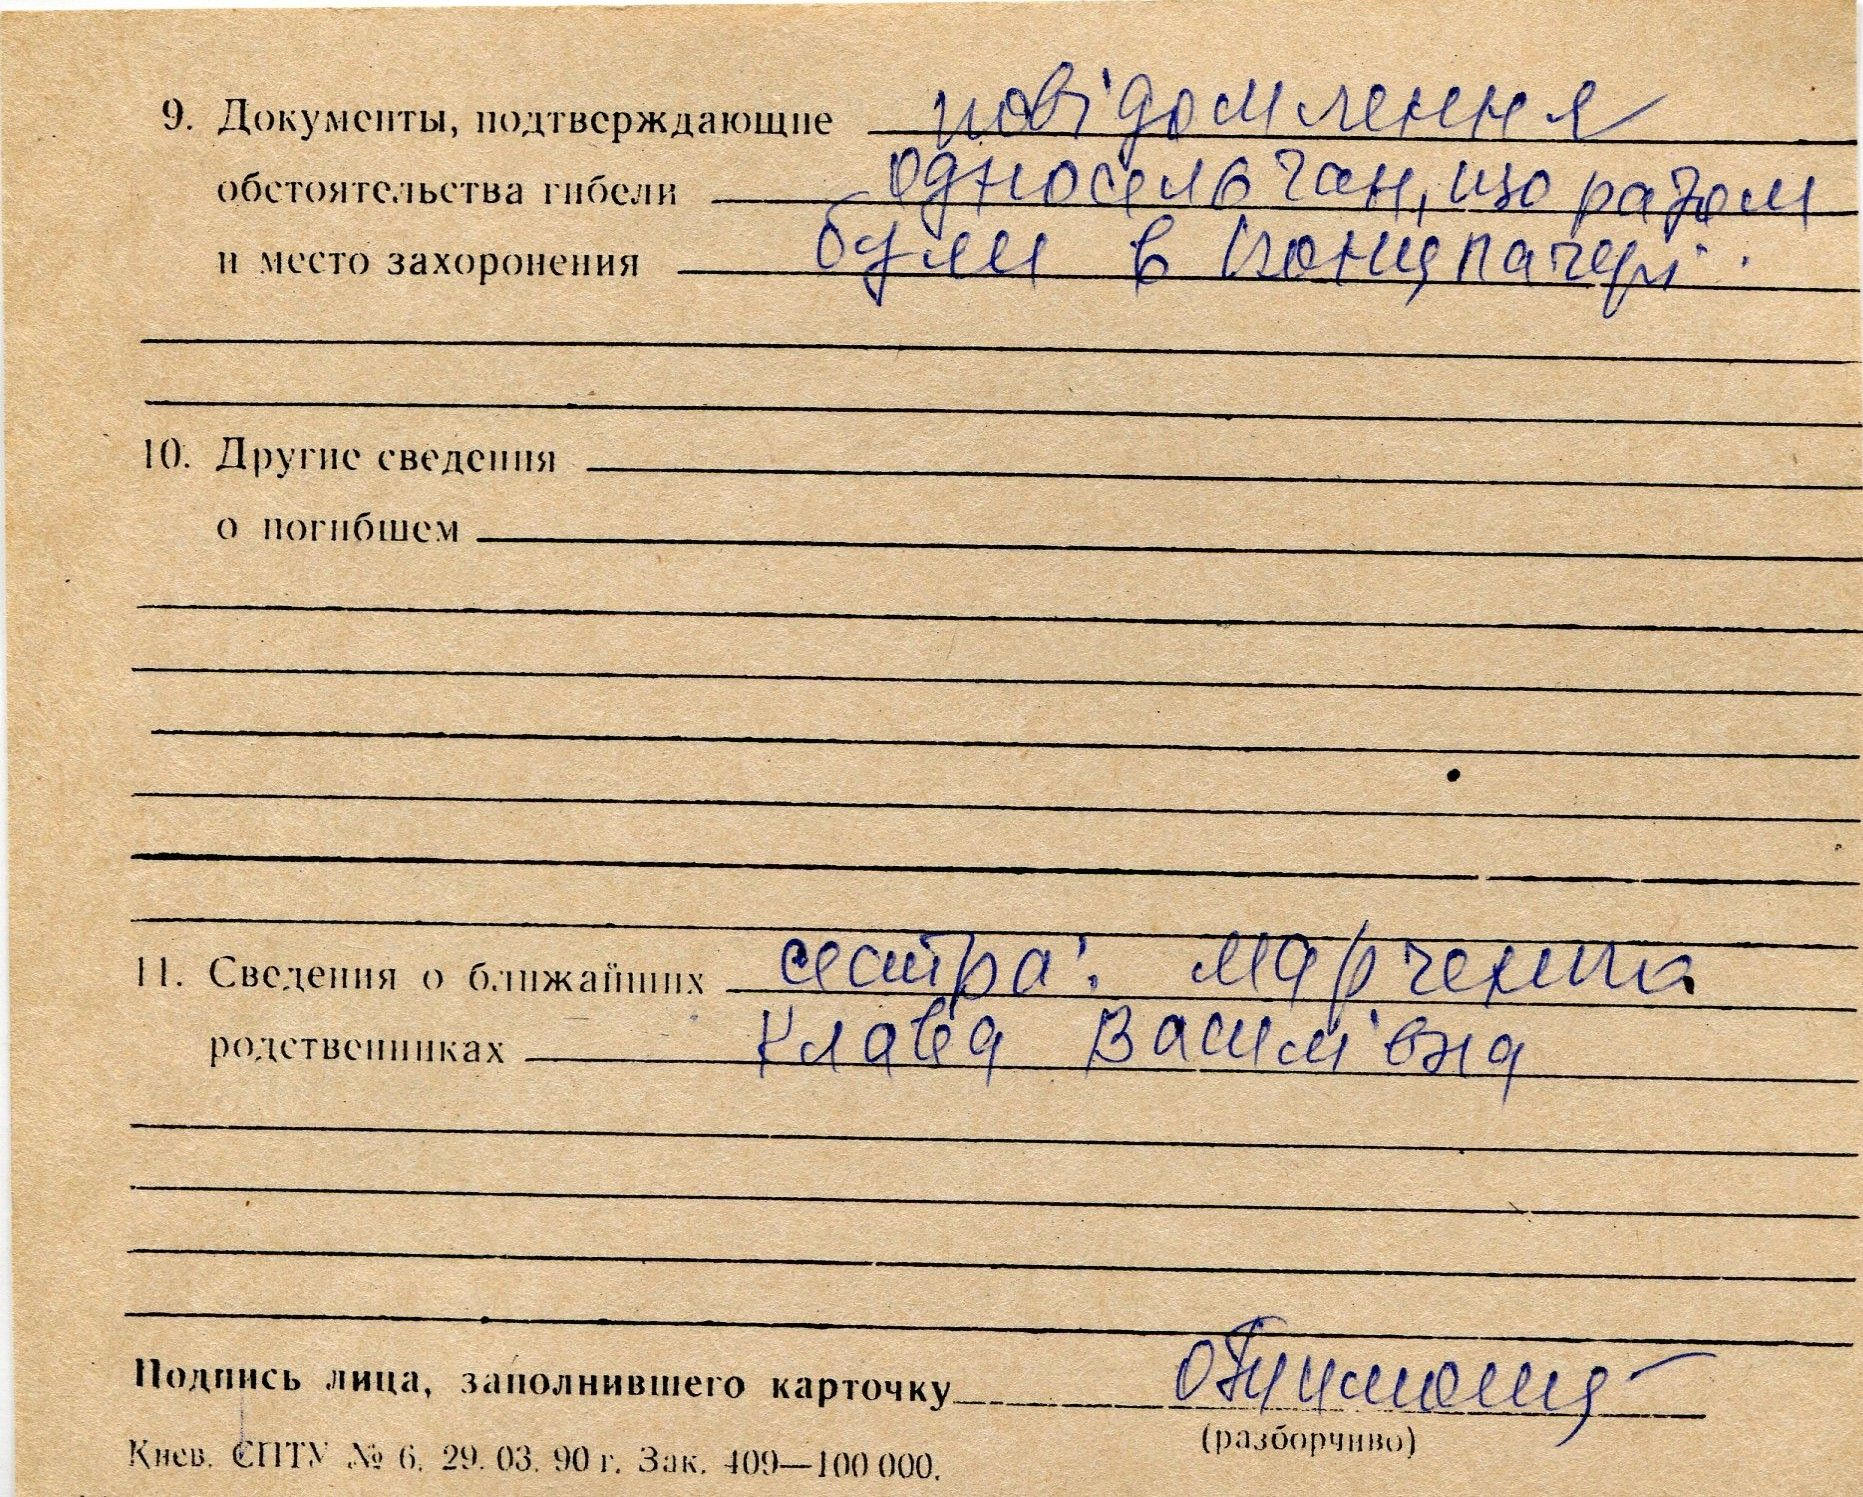 9. Документы, подтверждающие повідомлення
обстоятельства гибели односельчан, що разом
и место захоронения були в концлагері.
10. Другие сведения
о погибшем
11. Сведения о ближайших сестра: Марченко
родственниках Клава Василівна
Подпись лица, заполнившего карточку
(разборчиво)
Киев. СПТУ № 6. 29. 03. 90 г. Зак. 409—100 000.